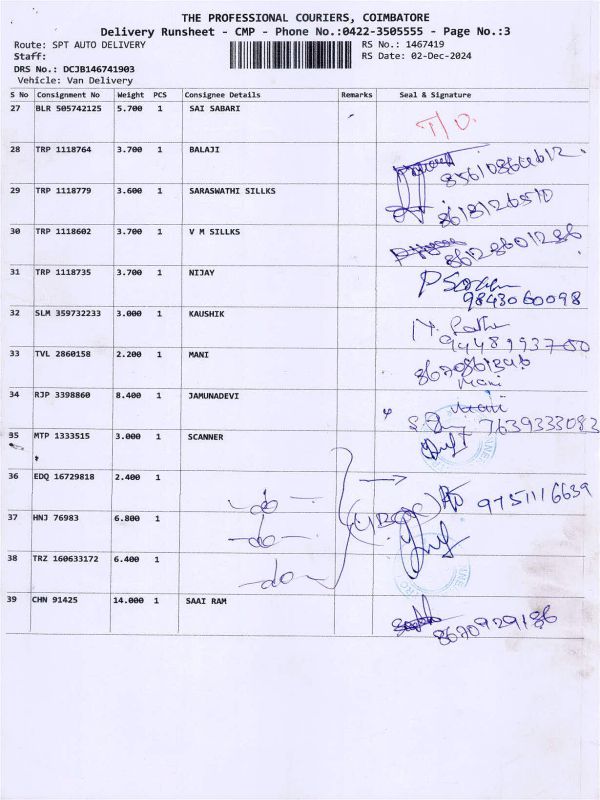 THE PROFESSIONAL COURIERS, COIMBATORE
Delivery Runsheet - CMP - Phone No.:0422-3505555 - Page No.:3
Route: SPT AUTO DELIVERY RS No.: 1467419
Staff: RS Date: 02-Dec-2024
DRS No.: DCJB146741903
Vehicle: Van Delivery
S No Consignment No Weight PCS Consignee Details Remarks Seal & Signature
27 BLR 505742125 5.700 1 SAI SABARI T/O.
28 TRP 1118764 3.700 1 BALAJI
29 TRP 1118779 3.600 1 SARASWATHI SILLKS 8618126510
30 TRP 1118602 3.700 1 V M SILLKS 8628601286
31 TRP 1118735 3.700 1 NIJAY
9843060098
32 SLM 359732233 3.000 1 KAUSHIK
33 TVL 2860158 2.200 1 MANI
Mani
34 RJP 3398860 8.400 1 JAMUNADEVI
7639333082
35 MTP 1333515 3.000 1 SCANNER
36 EDQ 16729818 2.400 1 -do- 9751116639
37 HNJ 76983 6.800 1 -do-
38 TRZ 160633172 6.400 1 -do-
39 CHN 91425 14.000 1 SAAI RAM
8670929186